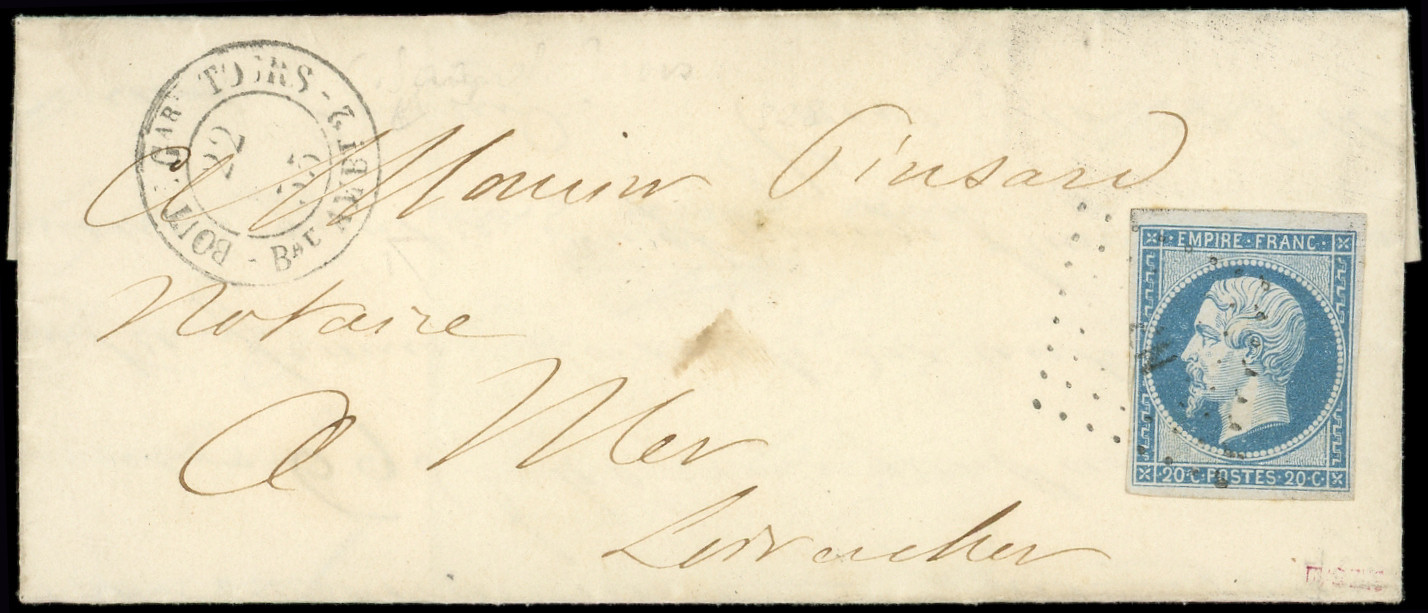 TOURS
BOITE GARE
22
55
A Monsieur Pinsard
Notaire
A Mer
Loir et cher
EMPIRE · FRANC ·
20 · C · POSTES · 20 · C ·